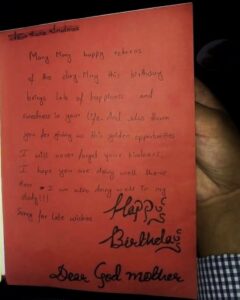 Many Many happy returns
of the day. May this birthday
brings lots of happiness and
sweetness in your life. And also thank
you for giving us this golden opportunities
I will never forget your kindness.
I hope you are doing well there
I we also doing well in my
study!!!
Sorry for late wishes
Happy
Birthday
Dear God mother